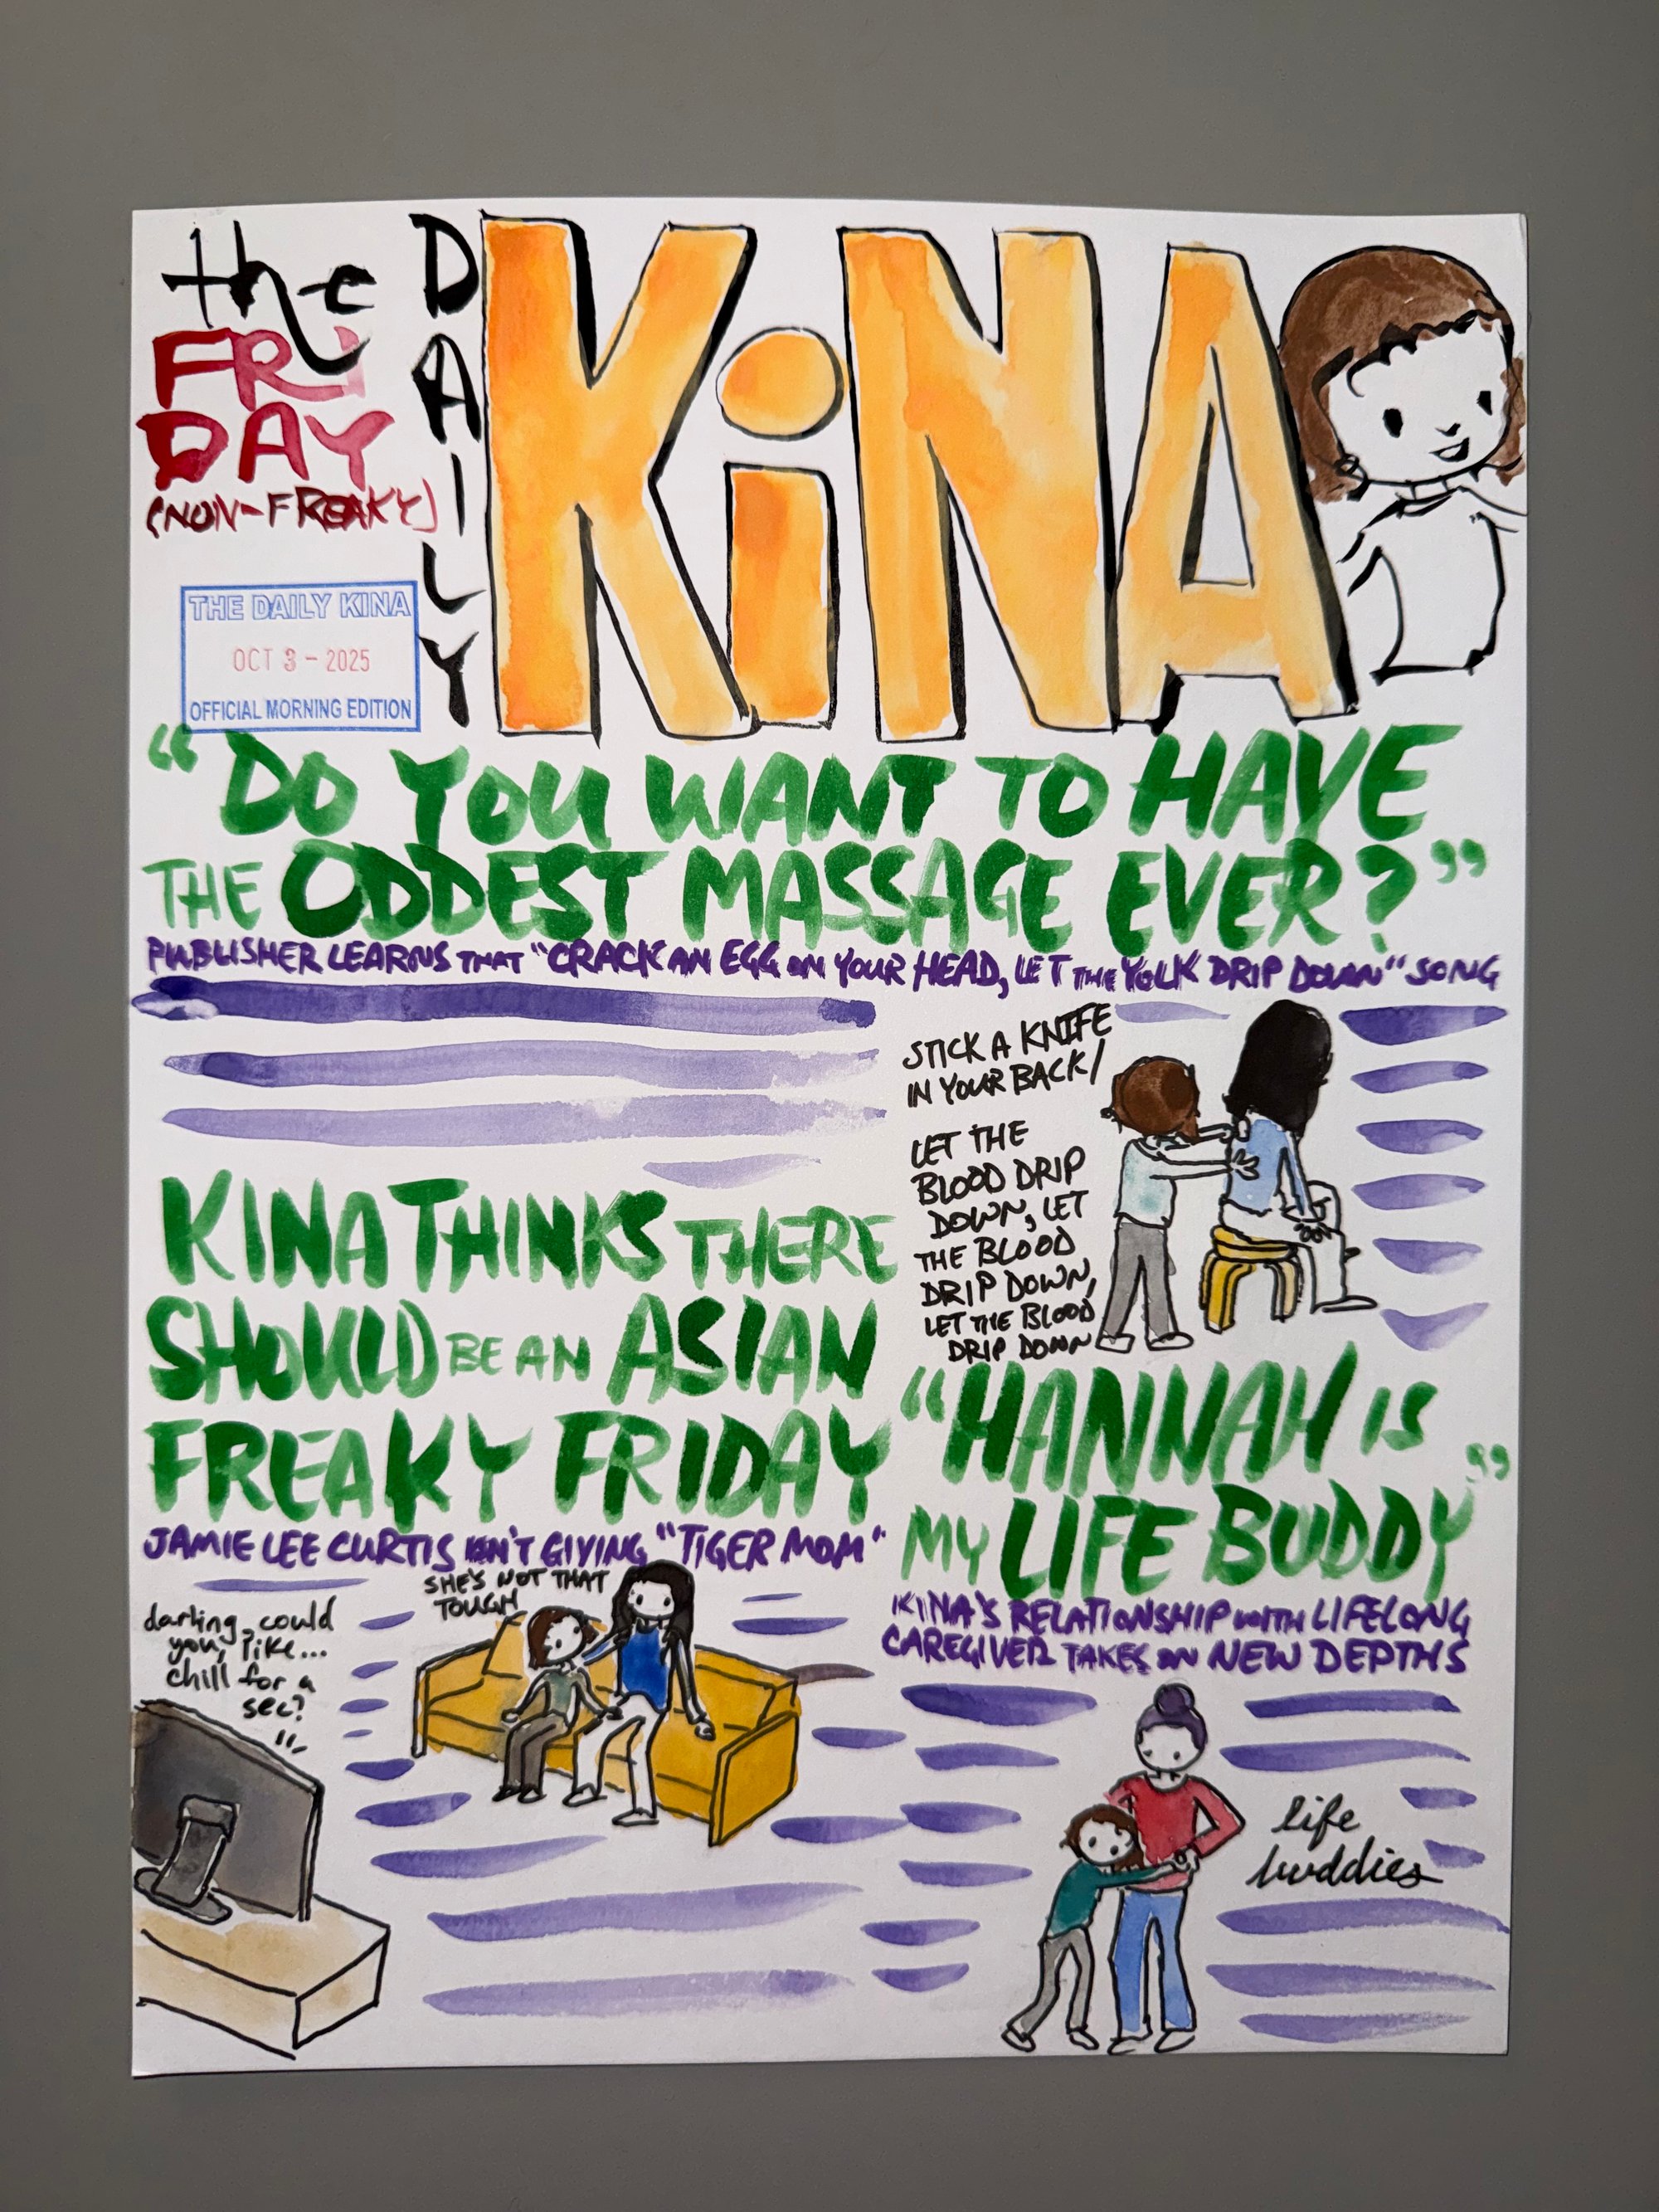 the
FRi
DAY
(NON-FREAKY)
DAILY
KiNA
THE DAILY KINA
OCT 3 - 2025
OFFICIAL MORNING EDITION
"DO YOU WANT TO HAVE
THE ODDEST MASSAGE EVER?"
PUBLISHER LEARNS THAT "CRACK AN EGG ON YOUR HEAD, LET THE YOLK DRIP DOWN" SONG
STICK A KNIFE
IN YOUR BACK/
LET THE
BLOOD DRIP
DOWN, LET
THE BLOOD
DRIP DOWN,
LET THE BLOOD
DRIP DOWN
KINA THINKS THERE
SHOULD BE AN ASIAN
FREAKY FRIDAY
JAMIE LEE CURTIS ISN'T GIVING "TIGER MOM"
SHE'S NOT THAT
TOUGH
darling, could
you, like...
chill for a
sec?
"HANNAH IS
MY LIFE BUDDY"
KINA'S RELATIONSHIP WITH LIFELONG
CAREGIVER TAKES ON NEW DEPTHS
life
buddies